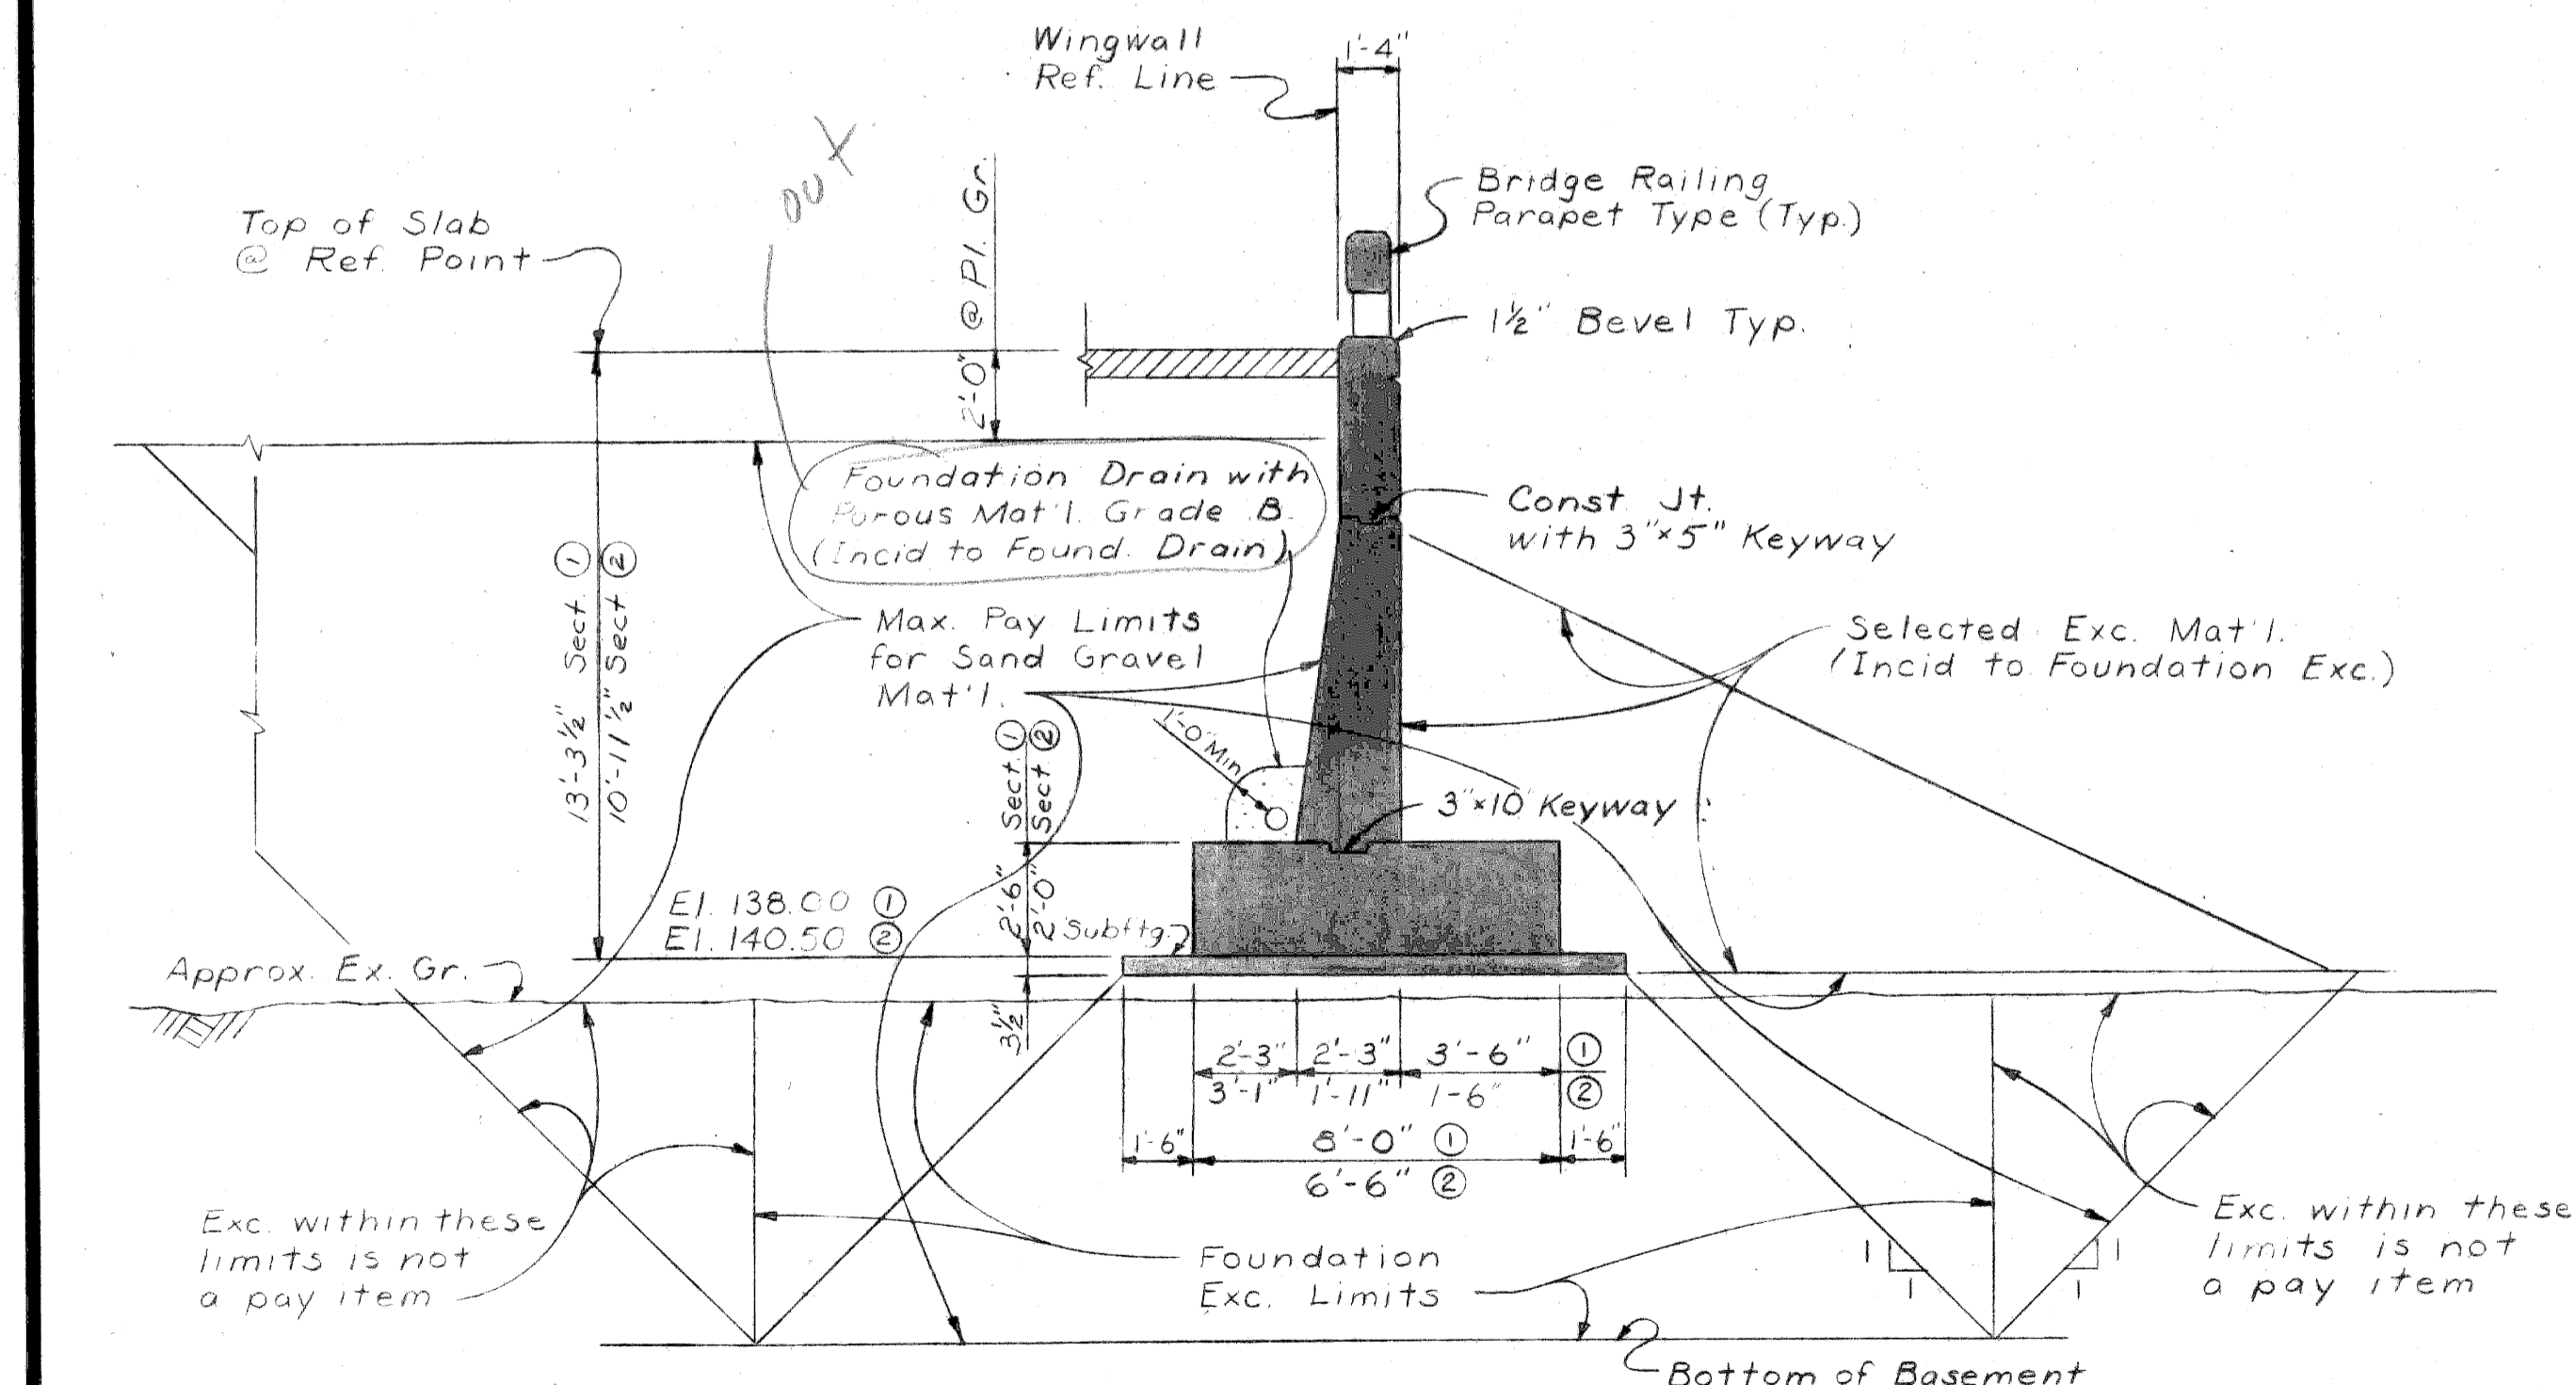 Wingwall
Ref. Line
1'-4"
out
Bridge Railing
Parapet Type (Typ.)
Top of Slab
@ Ref. Point
2'-0" @ Pl. Gr.
1½" Bevel Typ.
Foundation Drain with
Porous Mat'l. Grade B.
(Incid to Found. Drain)
Const. Jt.
with 3"x5" Keyway
13'-3½" Sect. ①
10'-11½" Sect ②
Max. Pay Limits
for Sand Gravel
Mat'l.
Selected Exc. Mat'l.
(Incid to Foundation Exc.)
1'-0" Min.
2'-6" Sect. ①
2'-0" Sect ②
3"x10" Keyway
El. 138.00 ①
El. 140.50 ②
Subftg.
Approx. Ex. Gr.
3½"
2'-3" 2'-3" 3'-6" ①
3'-1" 1'-11" 1-6" ②
1'-6" 8'-0" ① 1'-6"
6'-6" ②
Exc. within these
limits is not
a pay item
Foundation
Exc. Limits
1
1
1
1
Exc. within these
limits is not
a pay item
Bottom of Basement